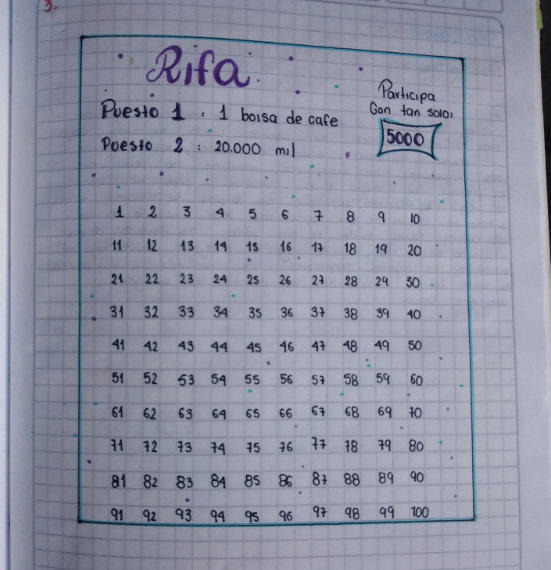 3.
Rifa
Puesto 1 : 1 bolsa de cafe
Puesto 2 : 20.000 mil
Participa
Con tan solo:
5000
1 2 3 4 5 6 7 8 9 10
11 12 13 14 15 16 17 18 19 20
21 22 23 24 25 26 27 28 29 30
31 32 33 34 35 36 37 38 39 40
41 42 43 44 45 46 47 48 49 50
51 52 53 54 55 56 57 58 59 60
61 62 63 64 65 66 67 68 69 70
71 72 73 74 75 76 77 78 79 80
81 82 83 84 85 86 87 88 89 90
91 92 93 94 95 96 97 98 99 100